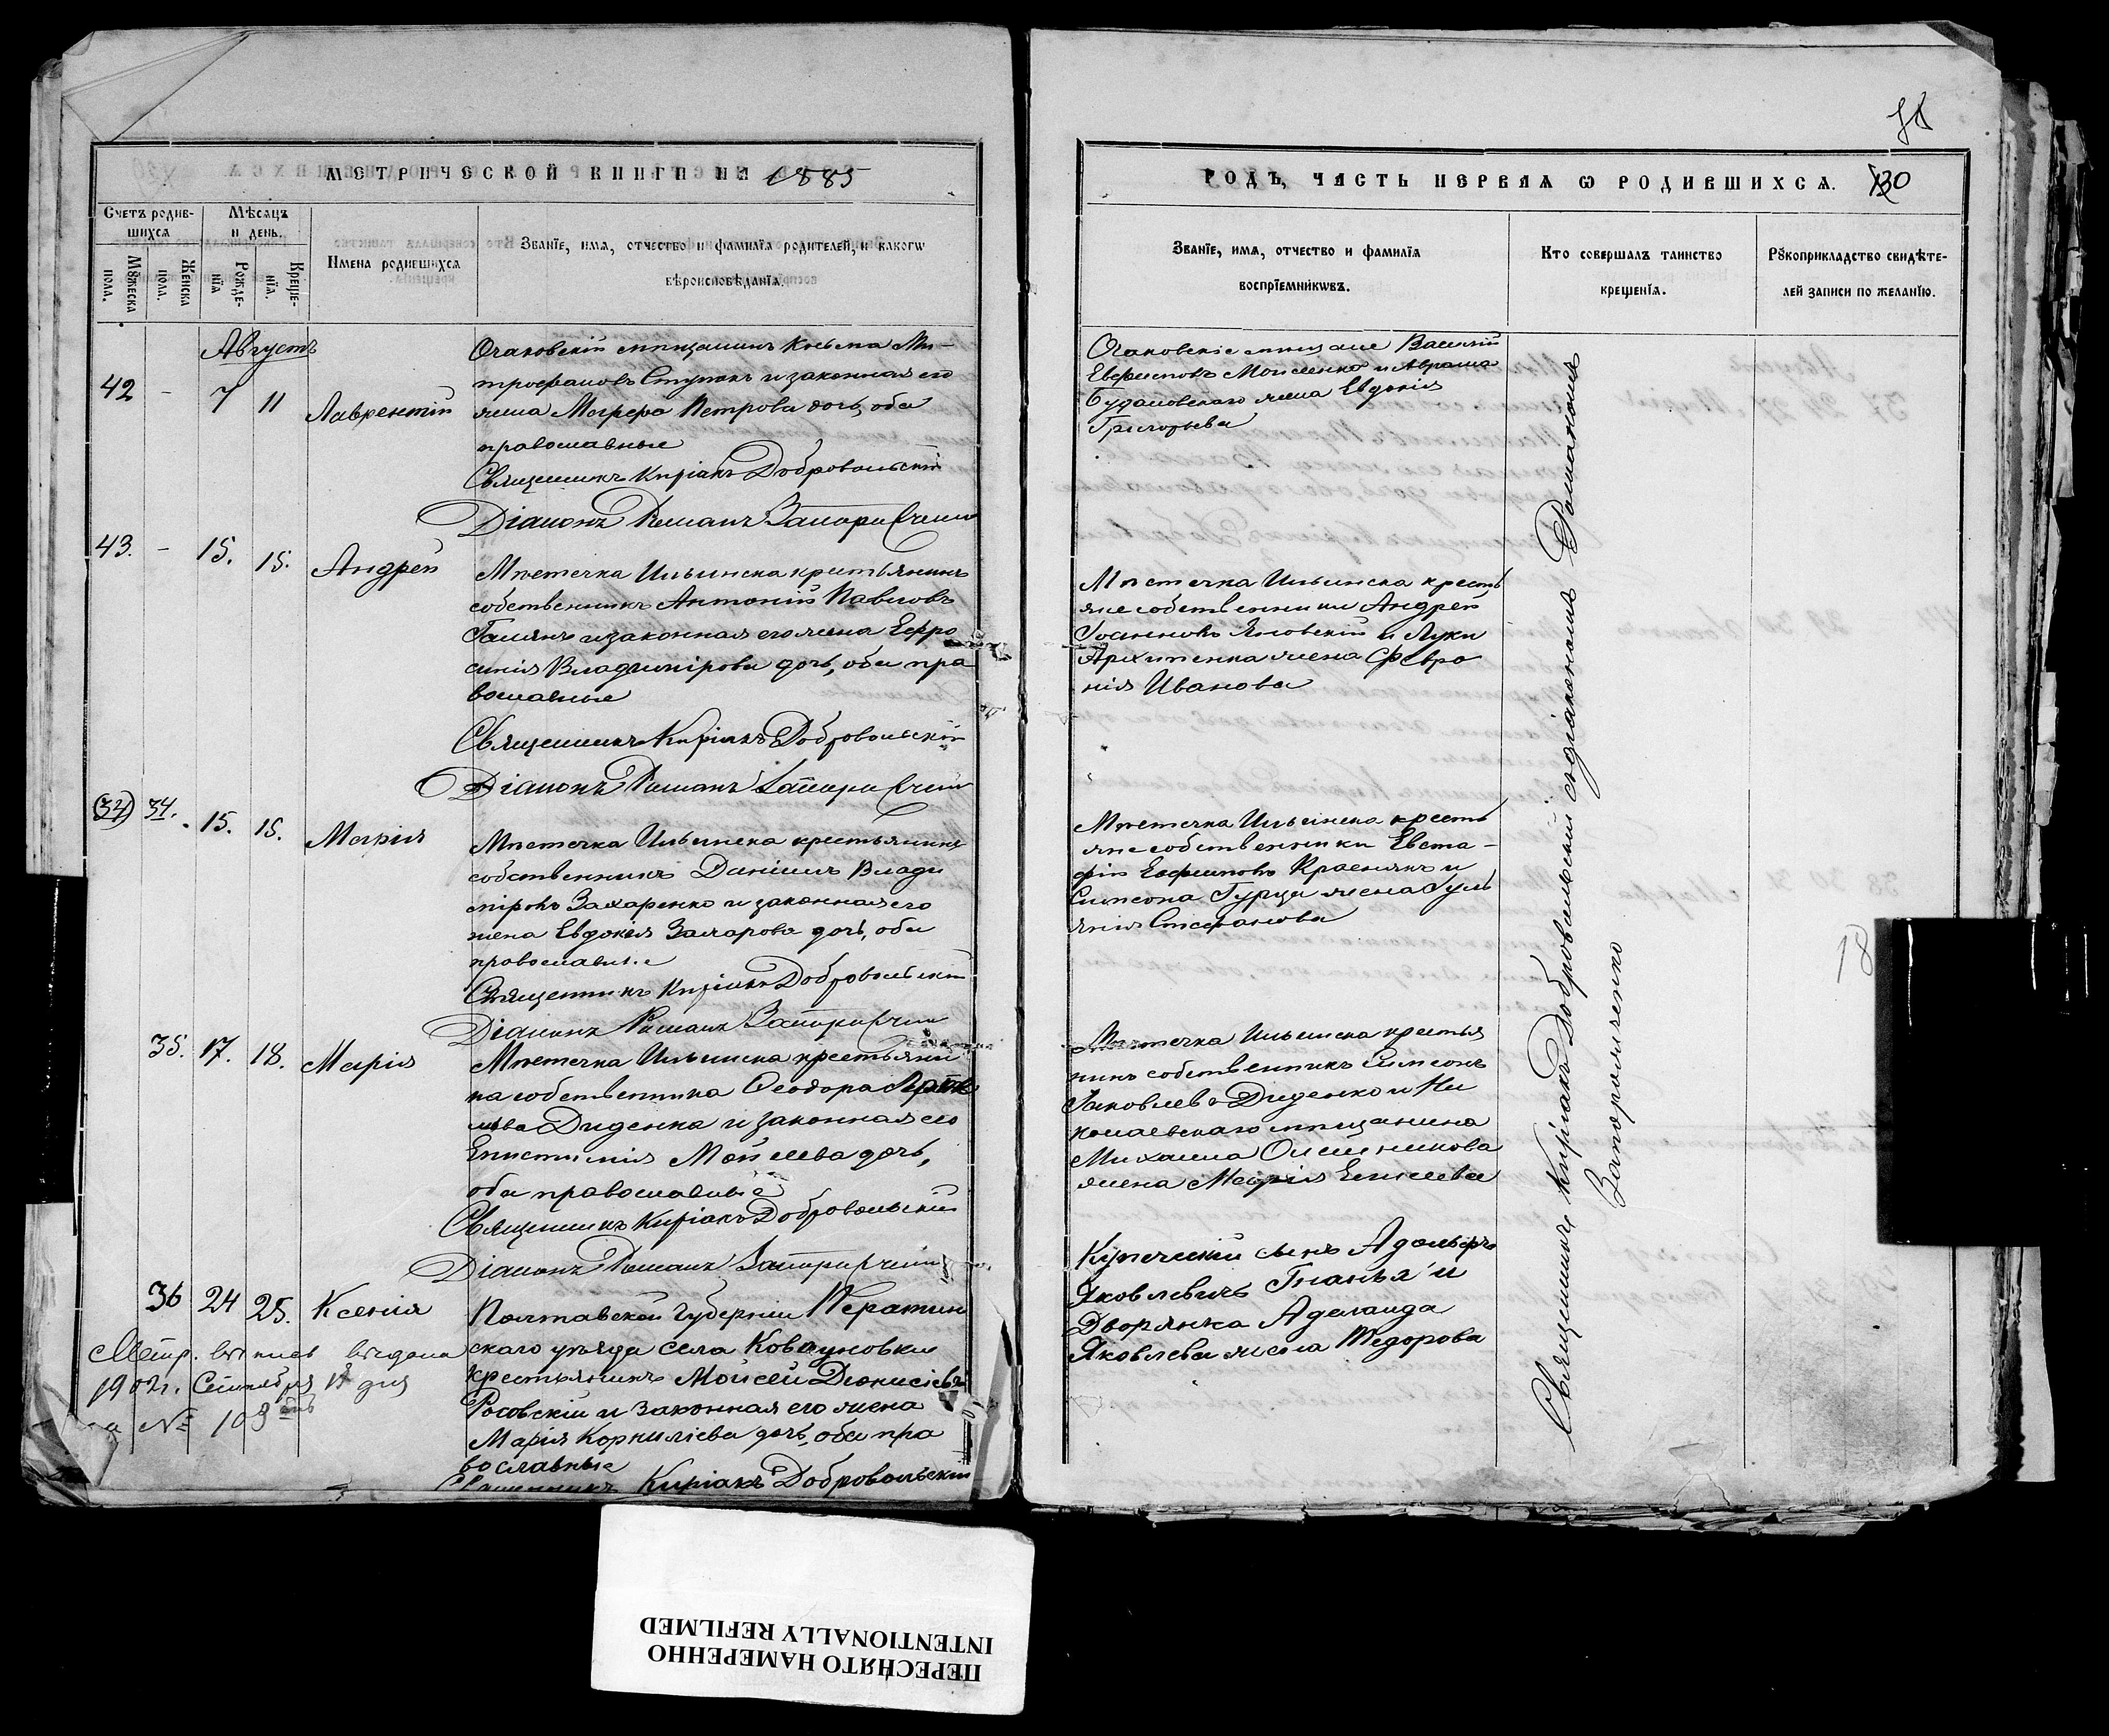 МЕТРИЧЕСКОЙ КНИГИ НА 1885
Счетъ родив-
шихся
Мѣсяцъ
и день.
Мужеска
пола.
Женска
пола.
Рожде-
нїя
Креще-
нїя.
Имена родившихся
Званїе, имя, отчество и фамилїя родителей, и какогѡ
вѣроисповѣданїя.
Августъ
42 - 7 11 Лаврентій
Очаковскій мѣщанинъ Косьма Ми-
трофановъ Ступакъ и законная его
жена Марфа Петрова дочь, оба
православные
Священникъ Киріакъ Добровольскій
Діаконъ Романъ
43. - 15. 15. Андрей
Мѣстечка Ильинска крестьянинъ
собственникъ Антоній Павловъ
и законная его жена Евфро
синія Владимірова дочь, оба пра
вославные
Священникъ Киріакъ Добровольскій
Діаконъ Романъ
34 34. 15. 15. Марія
Мѣстечка Ильинска крестьянинъ
собственникъ Даніилъ Влади
міровъ Захаренко и законная его
жена Евдокія Захарова дочь, оба
православные
Священникъ Киріакъ Добровольскій
Діаконъ Романъ
35. 17. 18. Марія
Мѣстечка Ильинска крестьяни
на собственника Ѳеодора
Диденка и законная его
Епистимія Мойсеева дочь,
оба православные
Священникъ Киріакъ Добровольскій
Діаконъ Романъ
36 24 25. Ксенія
Полтавской губерніи Пирятин
скаго уѣзда села Ковауновки
крестьянинъ Мойсей Діонисіевъ
Росовскій и законная его жена
Марія Корниліева дочь, оба пра
вославные
Священникъ Киріакъ Добровольскій
Метр. выпись выдана
1902 г. Сентября дня
за № 103
РОДЪ, ЧАСТЬ ПЕРВАЯ Ѡ РОДИВШИХСЯ. 130
Званїе, имя, отчество и фамилїя
воспрїемникѡвъ.
Кто совершалъ таинство
крещенїя.
Рукоприкладство свидѣте-
лей записи по желанїю.
Очаковскіе мѣщане Василій
Евфимовъ Мойсеенко и Авраама
Будановскаго жена Евдокія
Григорьева
Мѣстечка Ильинска кресть
яне собственники Андрей
Іоанновъ Яновскій и Луки
Архипенка жена Февро
нія Иванова
Мѣстечка Ильинска кресть
яне собственники Евста-
фій Евфимовъ Красникъ и
Симеона Гурца жена Іулі
янія Стефанова
Мѣстечка Ильинска крестья
нинъ собственникъ Симеонъ
Іаковлевъ Диденко и Ни
колаевскаго мѣщанина
Михаила
жена Марія Елисеева
Купеческій сынъ Адольфъ
Яковлевичъ и
Дворянка Аделаида
Яковлева жена Тедорова
Священникъ Киріакъ Добровольскій съ діакономъ Романомъ
Запорожченко
18
ПЕРЕСНЯТО НАМЕРЕННО
INTENTIONALLY REFILMED